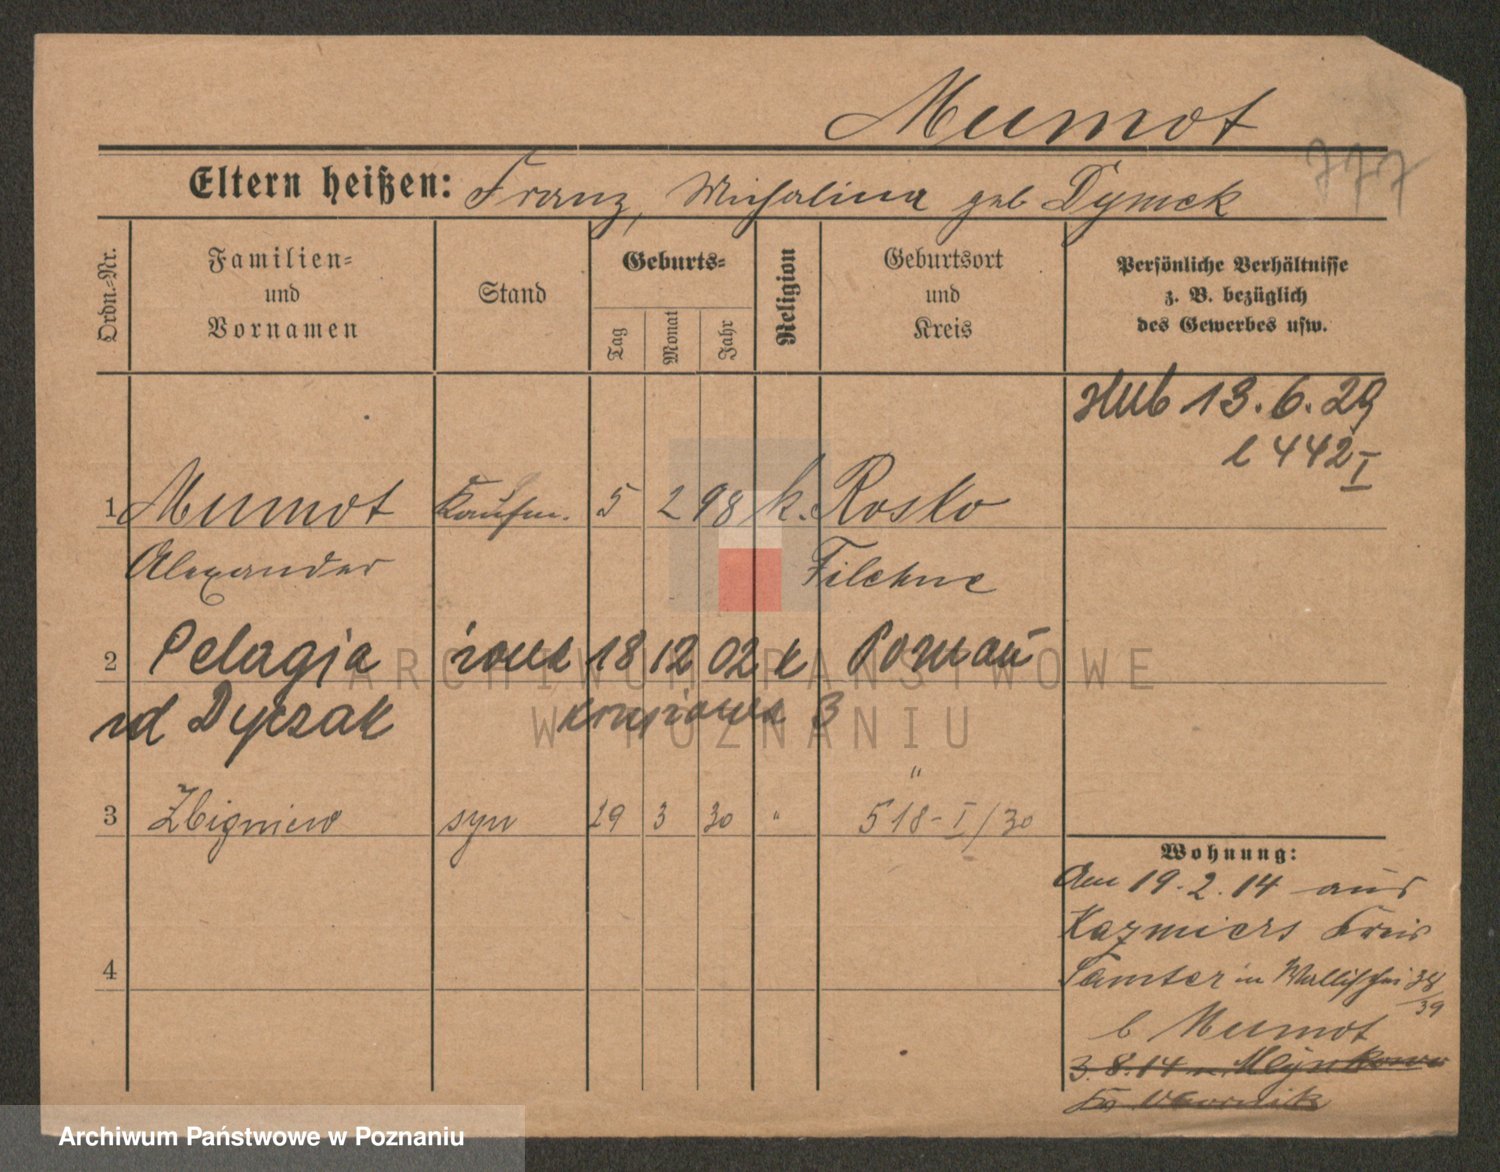 Mumot
777
Eltern heißen: Franz, Michalina geb Dymek
Ordn.-Nr.
Familien-
und
Vornamen
Stand
Geburts-
Tag
Monat
Jahr
Religion
Geburtsort
und
Kreis
Persönliche Verhältnisse
z. B. bezüglich
des Gewerbes usw.
ślub 13.6.29
l 442 I
1 Mumot Kaufm. 5 2 98 k. Rosko
Alexander Filehne
2 Pelagja żona 18 12 02 k Poznań
zd Dyczak 3
"
3 Zbigniew syn 29 3 30 " 518-I/30
Wohnung:
Am 19.2.14 aus
Kazmierz Kreis
Samter in Wallischei 38/39
b Mumot
3.8.14 n. Mlynkowo
Kr. Obornik
4
ARCHIWUM PAŃSTWOWE
W POZNANIU
Archiwum Państwowe w Poznaniu